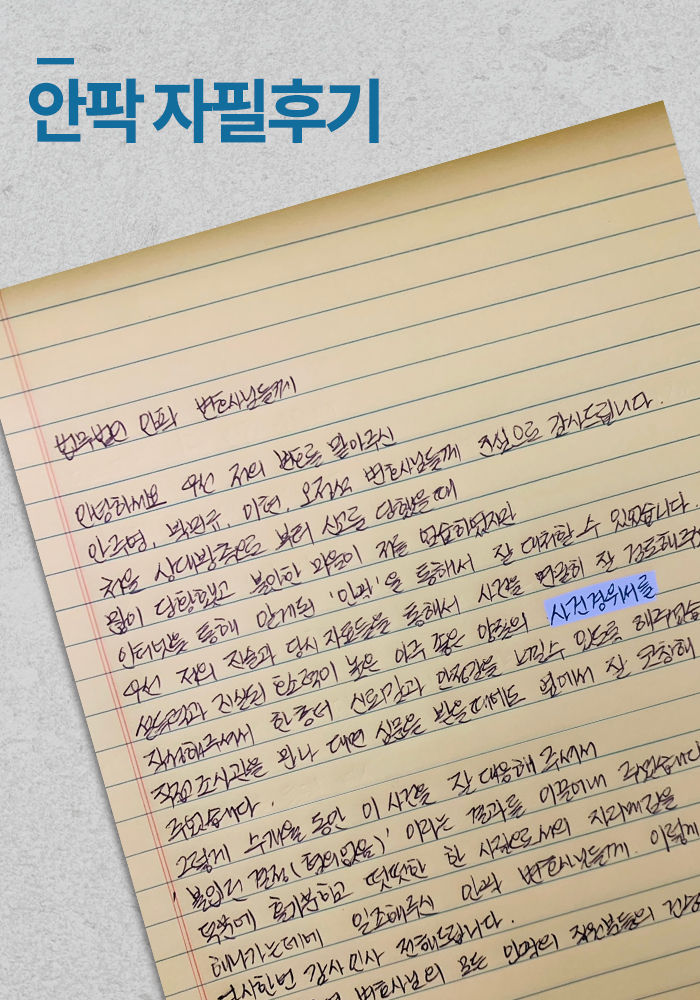 안팍 자필후기
법무법인 안팍 변호사님들께
안녕하세요 우선 저의 변호를 맡아주신
안주영, 박민규, 이현, 오정석 변호사님들께 진심으로 감사드립니다.
처음 상대방측으로 부터 신고를 당했을 때
많이 당황했고 불안한 마음이 저를 엄습하였지만
인터넷을 통해 알게된 '안팍'을 통해서 잘 대처할 수 있었습니다
우선 저의 진술과 당시 자료들을 통해서 사건을 면밀히 잘 검토해주
설득력과 진실된 호소력이 높은 아주 좋은 양질의 사건경위서를
작성해주셔서 한층더 신뢰감과 안정감을 느낄수 있도록 해주셨습
직접 조사관을 만나 대면 심문을 받을때에도 옆에서 잘 코칭해
주셨습니다.
그렇게 수개월 동안 이 사건을 잘 대응해 주셔서
'불입건 결정(혐의없음)' 이라는 결과를 이끌어내 주셨습니다
덕분에 홀가분하고 떳떳한 한 사람으로서의 지라매김을
해나가는데에 일조해주신 안팍 변호사님들께 이렇게
감사인사 전해드립니다.
변호사님외 모든 안팍의 직원분들의